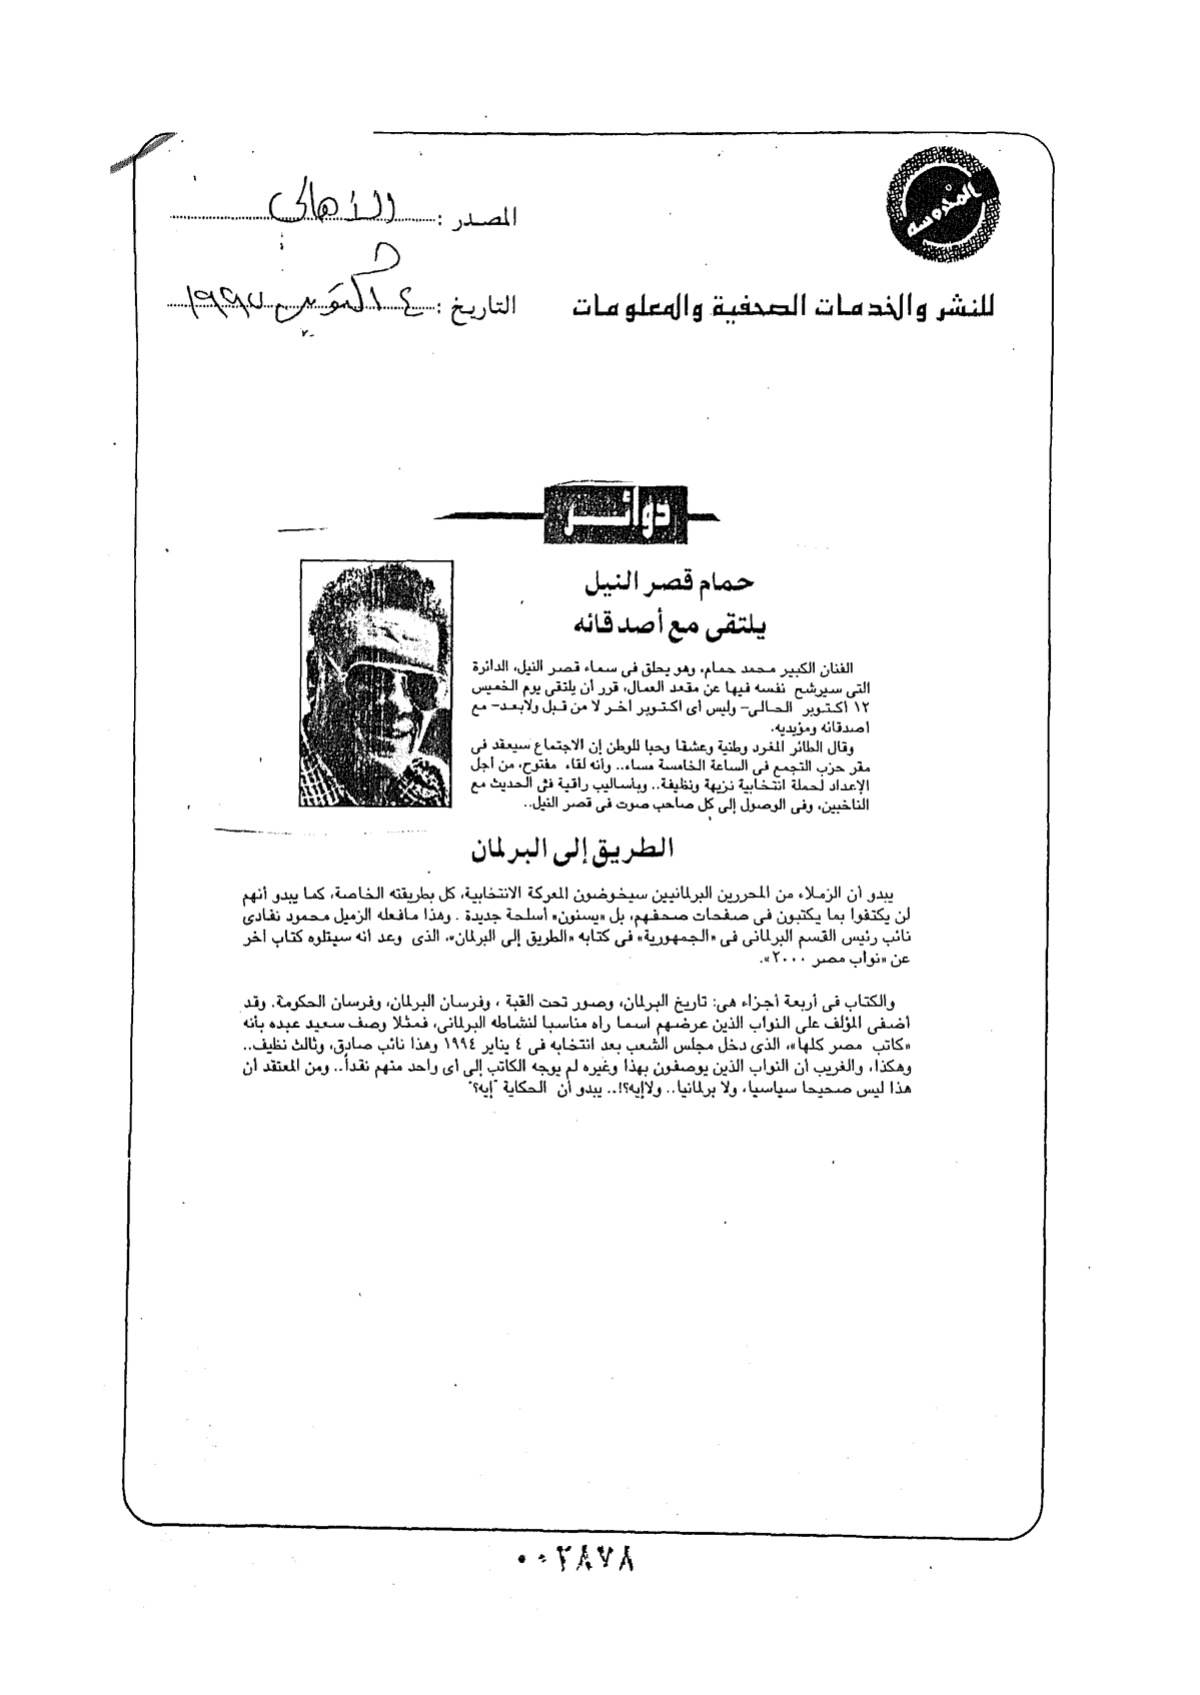 المدوسه
المصدر : الأهالى
للنشر والخدمات الصحفية والمعلومات
التاريخ : ٤ أكتوبر
دوائر
حمام قصر النيل
يلتقى مع أصدقائه
الفنان الكبير محمد حمام، وهو يحلق فى سماء قصر النيل، الدائرة
التى سيرشح نفسه فيها عن مقعد العمال، قرر أن يلتقى يوم الخميس
١٢ أكتوبر الحالى- وليس أى اكتوبر اخر لا من قبل ولابعد- مع
اصدقائه ومؤيديه.
وقال الطائر المغرد وطنية وعشقا وحبا للوطن إن الاجتماع سيعقد فى
مقر حزب التجمع فى الساعة الخامسة مساء.. وأنه لقاء مفتوح، من أجل
الإعداد لحملة انتخابية نزيهة ونظيفة.. وبأساليب راقية فى الحديث مع
الناخبين، وفى الوصول إلى كل صاحب صوت فى قصر النيل..
الطريق إلى البرلمان
يبدو أن الزملاء من المحررين البرلمانيين سيخوضون المعركة الانتخابية، كل بطريقته الخاصة، كما يبدو أنهم
لن يكتفوا بما يكتبون فى صفحات صحفهم، بل «يسنون» أسلحة جديدة . وهذا مافعله الزميل محمود نفادى
نائب رئيس القسم البرلمانى فى «الجمهورية» فى كتابه «الطريق إلى البرلمان»، الذى وعد انه سيتلوه كتاب اخر
عن «نواب مصر ٢٠٠٠».
والكتاب فى أربعة أجزاء هى: تاريخ البرلمان، وصور تحت القبة ، وفرسان البرلمان، وفرسان الحكومة. وقد
أضفى المؤلف على النواب الذين عرضهم اسما راه مناسبا لنشاطه البرلمانى، فمثلا وصف سعيد عبده بأنه
«كاتب مصر كلها»، الذى دخل مجلس الشعب بعد انتخابه فى ٤ يناير ١٩٩٤ وهذا نائب صادق، وثالث نظيف..
وهكذا، والغريب أن النواب الذين يوصفون بهذا وغيره لم يوجه الكاتب إلى أى واحد منهم نقداً.. ومن المعتقد أن
هذا ليس صحيحا سياسيا، ولا برلمانيا.. ولاإيه؟!.. يبدو أن الحكاية "إيه؟"
٠٠٢٨٧٨